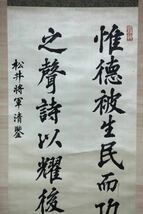 惟德被生民而功
之聲詩以耀後
松井將軍清鑒